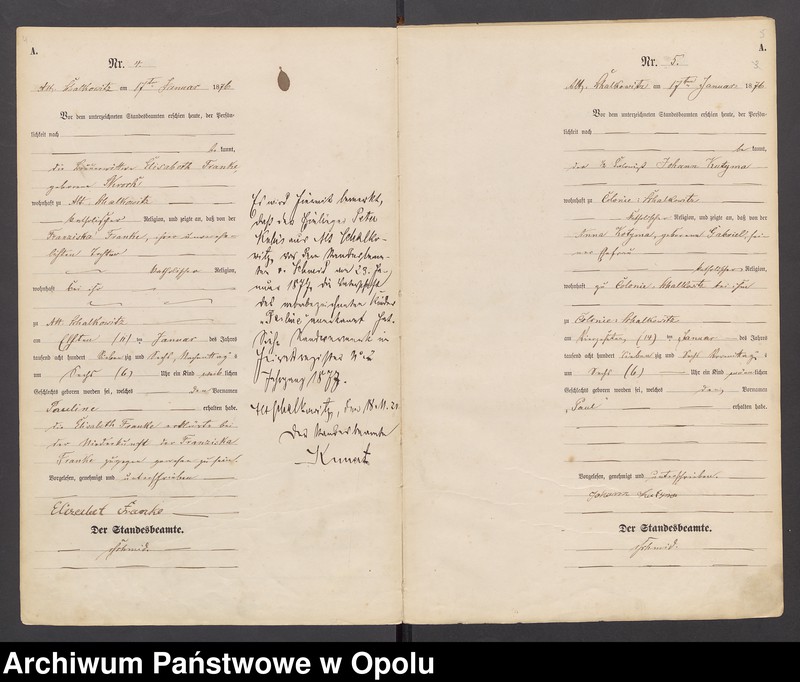 A.
Nr. 4.
Alt Schalkowitz am 17ten Januar 1876
Vor dem unterzeichneten Standesbeamten erschien heute, der Persön-
lichkeit nach
be kannt,
die Elisabeth Franke
geborene
wohnhaft zu Alt Schalkowitz
katholischer Religion, und zeigte an, daß von der
Franziska Franke, ihrer
Tochter
katholischer Religion,
wohnhaft bei ihr
zu Alt Schalkowitz
am Elften (11) ten Januar des Jahres
tausend acht hundert sieben zig und sechs, Nachmittag s
um Sechs (6) Uhr ein Kind weib lichen
Geschlechts geboren worden sei, welches den Vornamen
Pauline erhalten habe.
die Elisabeth Franke erklärte bei
der Niederkunft der Franziska
Franke zugegen gewesen zu sein.
Vorgelesen, genehmigt und unterschrieben
Franke
Der Standesbeamte.
Schmid.
Es wird hiermit bemerkt,
daß der Peter
aus Alt Schalko-
witz vor dem Standesbeam-
ten v. Schmid am 23. Ja-
nuar 1877 die Vaterschaft
des Kindes
anerkannt hat.
Siehe Randvermerk im
Heiratsregister
Jahrgang 1877.
Alt Schalkowitz, den
Der Standesbeamte
A.
Nr. 5.
Alt Schalkowitz am 17ten Januar 1876
Vor dem unterzeichneten Standesbeamten erschien heute, der Persön-
lichkeit nach
be kannt,
der Colonist Johann Kutzma
wohnhaft zu Colonie Schalkowitz
katholischer Religion, und zeigte an, daß von der
Anna Kotzma, geborene Gabriel, sei-
ner Ehefrau
katholischer Religion,
wohnhaft zu Colonie Schalkowitz bei ihm
zu Colonie Schalkowitz
am Vierzehnten (14) ten Januar des Jahres
tausend acht hundert sieben zig und sechs Vormittag s
um Sechs (6) Uhr ein Kind männlichen
Geschlechts geboren worden sei, welches den Vornamen
„Paul“ erhalten habe.
Vorgelesen, genehmigt und unterschrieben.
Johann
Der Standesbeamte.
Schmid.
Archiwum Państwowe w Opolu